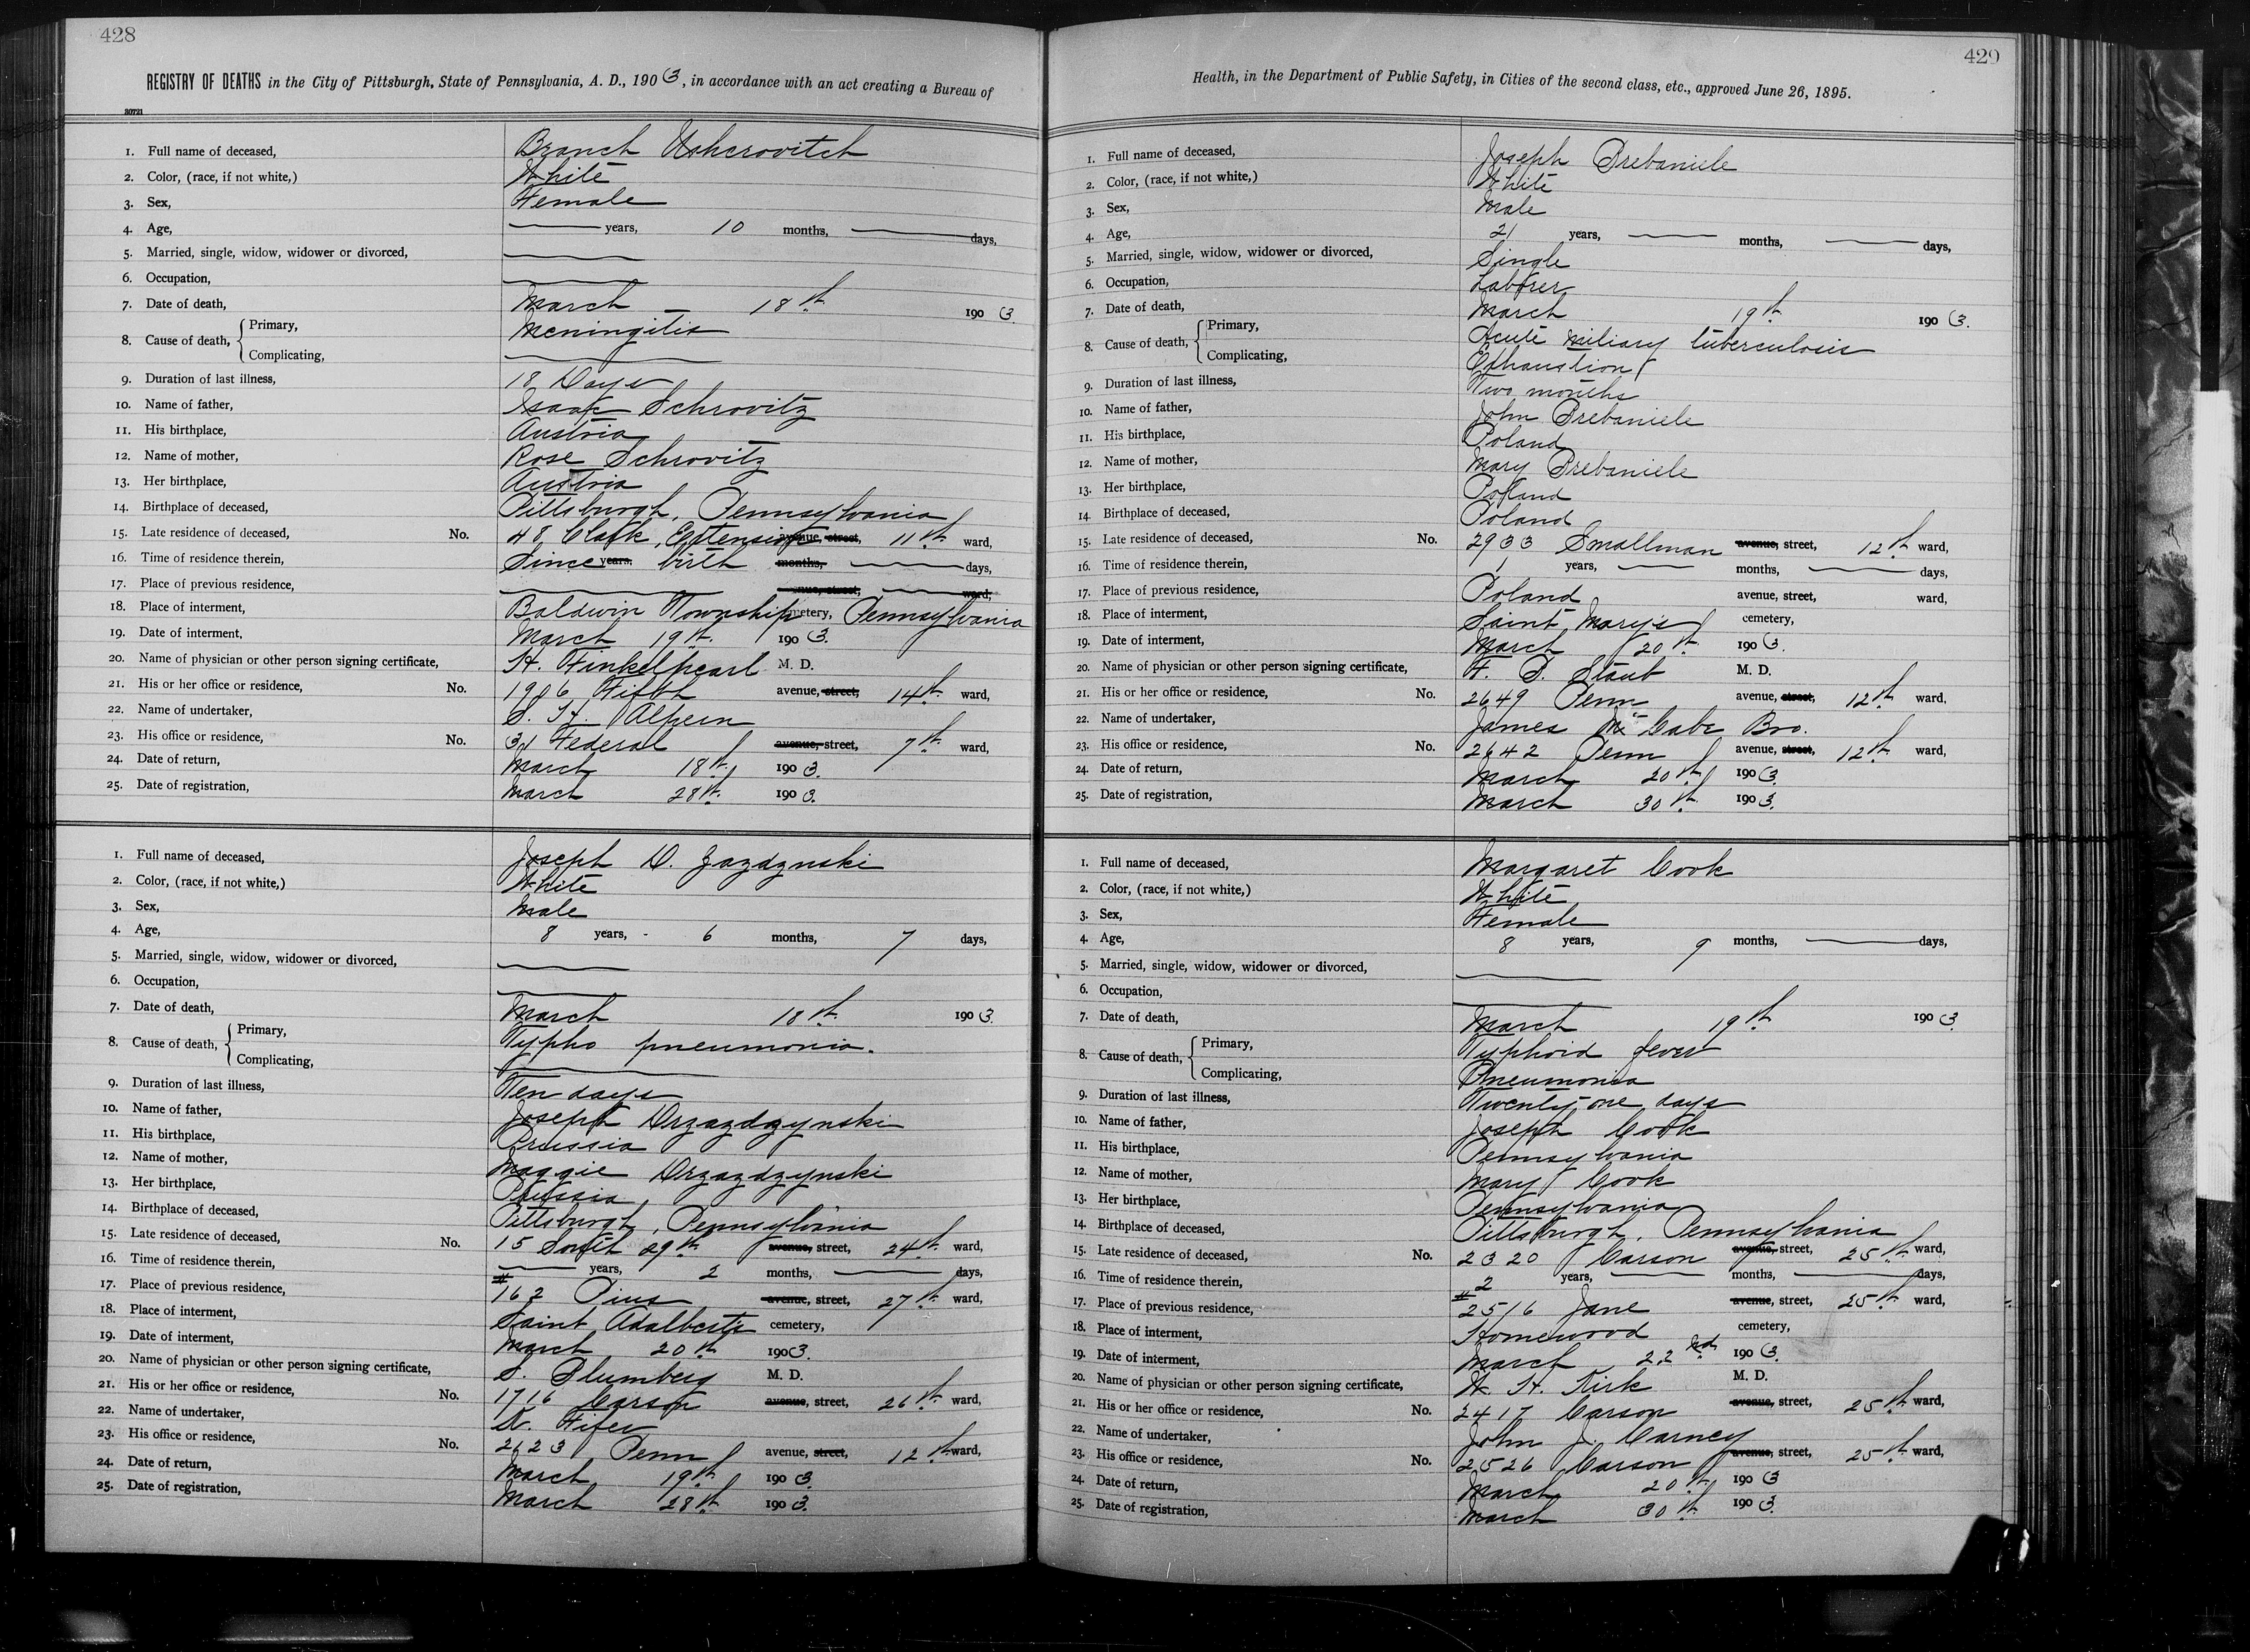 428
REGISTRY OF DEATHS in the City of Pittsburgh, State of Pennsylvania, A. D., 1903, in accordance with an act creating a Bureau of
30721
1. Full name of deceased, Branch Ushcrovitch
2. Color, (race, if not white,) White
3. Sex, Female
4. Age, years, 10 months, days,
5. Married, single, widow, widower or divorced,
6. Occupation,
7. Date of death, March 18th 1903.
8. Cause of death, Primary, Meningitis
Complicating,
9. Duration of last illness, 18 Days
10. Name of father, Isaac Schrovitz
11. His birthplace, Austria
12. Name of mother, Rose Schrovitz
13. Her birthplace, Austria
14. Birthplace of deceased, Pittsburgh, Pennsylvania
15. Late residence of deceased, No. 48 Clark, Extension avenue, street, 11th ward,
16. Time of residence therein, Since years, birth months, days,
17. Place of previous residence, avenue, street, ward,
18. Place of interment, Baldwin Township cemetery, Pennsylvania
19. Date of interment, March 19th 1903.
20. Name of physician or other person signing certificate, H. Finkelpearl M. D.
21. His or her office or residence, No. 1906 Fifth avenue, street, 14th ward,
22. Name of undertaker, S. H. Alpern
23. His office or residence, No. 31 Federal avenue, street, 7th ward,
24. Date of return, March 18th 1903.
25. Date of registration, March 28th 1903.
1. Full name of deceased, Joseph D. Zazdznski
2. Color, (race, if not white,) White
3. Sex, Male
4. Age, 8 years, 6 months, 7 days,
5. Married, single, widow, widower or divorced,
6. Occupation,
7. Date of death, March 18th 1903.
8. Cause of death, Primary, Typho pneumonia.
Complicating,
9. Duration of last illness, Ten days
10. Name of father, Joseph Drzazdzynski
11. His birthplace, Prussia
12. Name of mother, Maggie Drzazdzynski
13. Her birthplace, Prussia
14. Birthplace of deceased, Pittsburgh, Pennsylvania
15. Late residence of deceased, No. 15 South 29th avenue, street, 24th ward,
16. Time of residence therein, years, 2 months, days,
17. Place of previous residence, # 162 Pius avenue, street, 27th ward,
18. Place of interment, Saint Adalberts cemetery,
19. Date of interment, March 20th 1903.
20. Name of physician or other person signing certificate, S. Plumberg M. D.
21. His or her office or residence, No. 1716 Carson avenue, street, 26th ward,
22. Name of undertaker, N. Fifer
23. His office or residence, No. 2623 Penn avenue, street, 12th ward,
24. Date of return, March 19th 1903.
25. Date of registration, March 28th 1903.
429
Health, in the Department of Public Safety, in Cities of the second class, etc., approved June 26, 1895.
1. Full name of deceased, Joseph Prebaniele
2. Color, (race, if not white,) White
3. Sex, Male
4. Age, 21 years, months, days,
5. Married, single, widow, widower or divorced, Single
6. Occupation, Laborer
7. Date of death, March 19th 1903.
8. Cause of death, Primary, Acute miliary tuberculosis
Complicating, Exhaustion
9. Duration of last illness, Two months
10. Name of father, John Prebaniele
11. His birthplace, Poland
12. Name of mother, Mary Prebaniele
13. Her birthplace, Poland
14. Birthplace of deceased, Poland
15. Late residence of deceased, No. 2933 Smallman avenue, street, 12th ward,
16. Time of residence therein, 1 years, months, days,
17. Place of previous residence, Poland avenue, street, ward,
18. Place of interment, Saint Mary's cemetery,
19. Date of interment, March 20th 1903.
20. Name of physician or other person signing certificate, F. P. Staub M. D.
21. His or her office or residence, No. 2649 Penn avenue, street, 12th ward,
22. Name of undertaker, James McCabe Bro.
23. His office or residence, No. 2642 Penn avenue, street, 12th ward,
24. Date of return, March 20th 1903.
25. Date of registration, March 30th 1903.
1. Full name of deceased, Margaret Cook
2. Color, (race, if not white,) White
3. Sex, Female
4. Age, 8 years, 9 months, days,
5. Married, single, widow, widower or divorced,
6. Occupation,
7. Date of death, March 19th 1903.
8. Cause of death, Primary, Typhoid fever
Complicating, Pneumonia
9. Duration of last illness, Twenty one days
10. Name of father, Joseph Cook
11. His birthplace, Pennsylvania
12. Name of mother, Mary Cook
13. Her birthplace, Pennsylvania
14. Birthplace of deceased, Pittsburgh, Pennsylvania
15. Late residence of deceased, No. 2320 Carson avenue, street, 25th ward,
16. Time of residence therein, 2 years, months, days,
17. Place of previous residence, # 2516 Jane avenue, street, 25th ward,
18. Place of interment, Homewood cemetery,
19. Date of interment, March 22nd 1903.
20. Name of physician or other person signing certificate, W. H. Kirk M. D.
21. His or her office or residence, No. 2417 Carson avenue, street, 25th ward,
22. Name of undertaker, John J. Carney
23. His office or residence, No. 2526 Carson avenue, street, 25th ward,
24. Date of return, March 20th 1903
25. Date of registration, March 30th 1903.